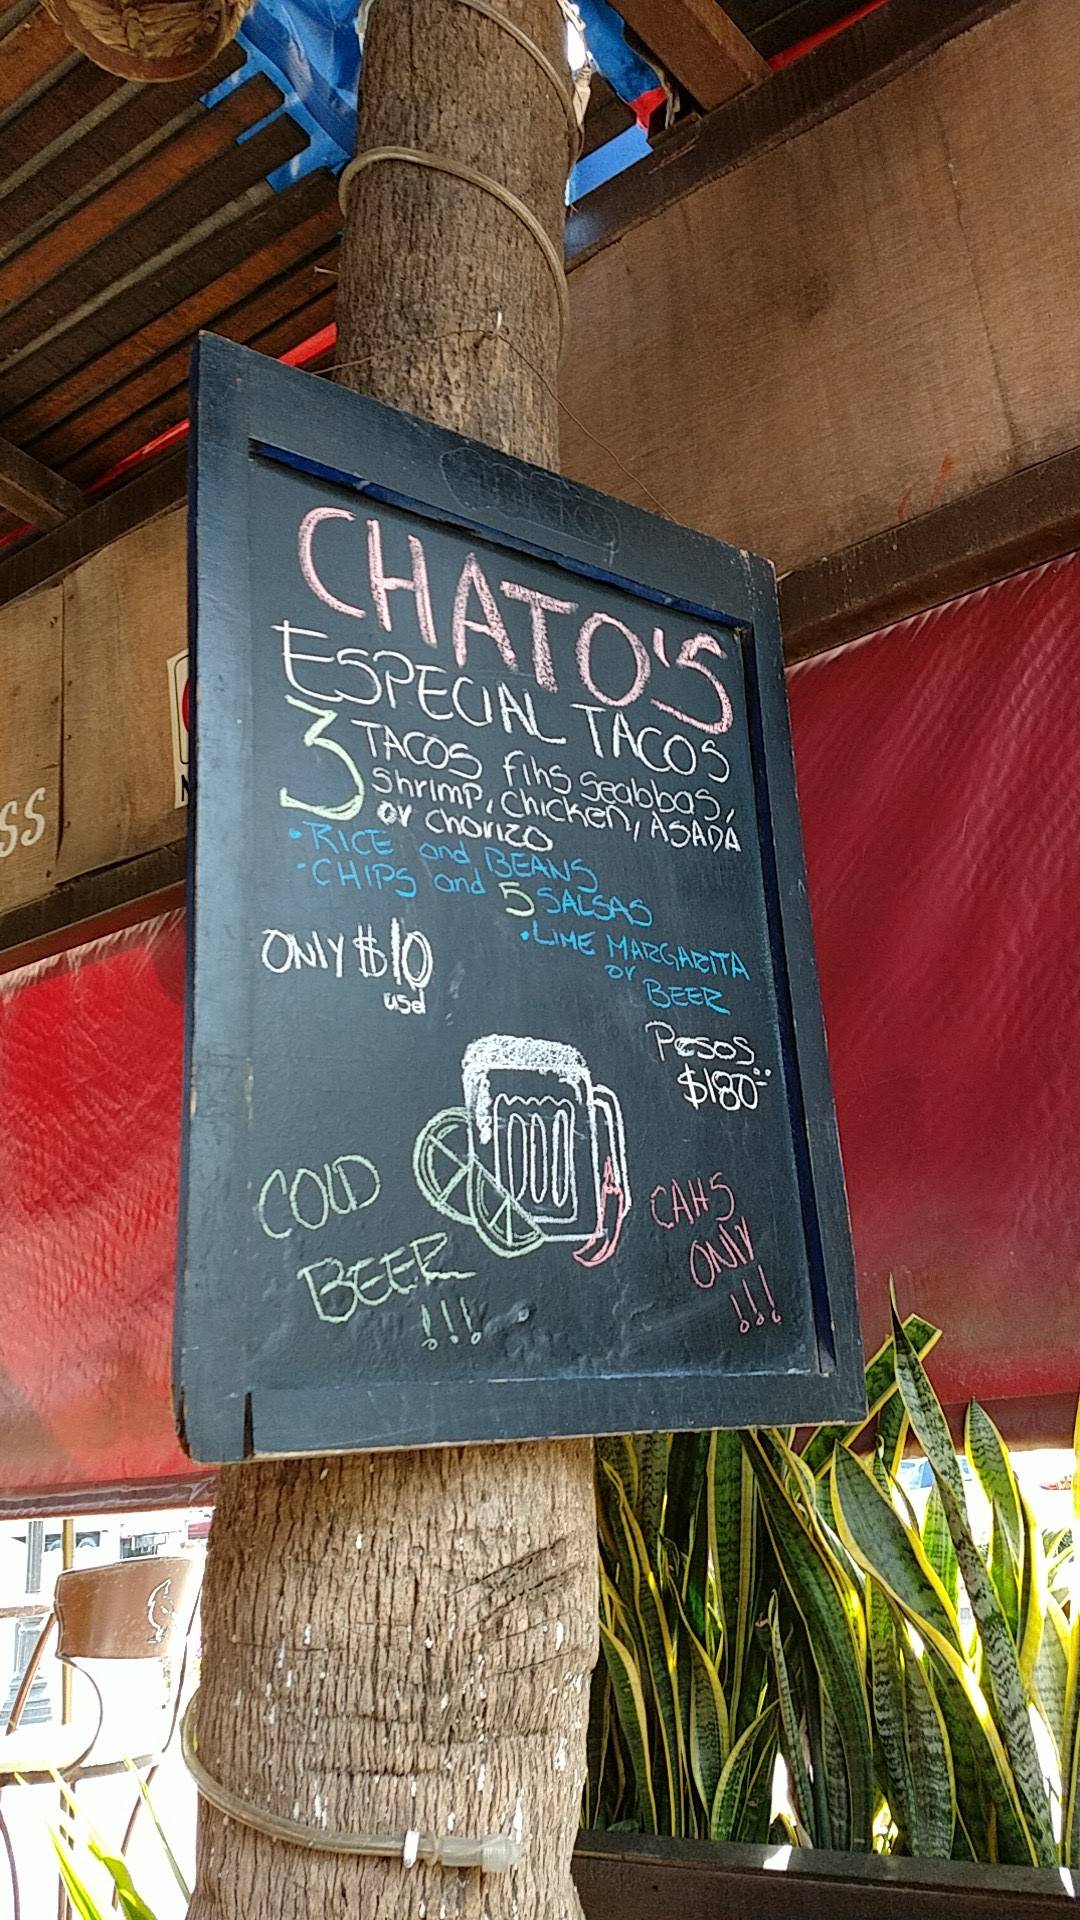 CHATO'S
ESPECIAL TACOS
3 TACOS fihs seabbas,
shrimp, chicken, ASADA
or chorizo
• RICE and BEANS
• CHIPS and 5 SALSAS
• LIME MARGARITA
or
BEER
ONLY $10
usd
Pesos
$180
COLD
BEER
!!!
CAHS
ONLY
!!!
SS